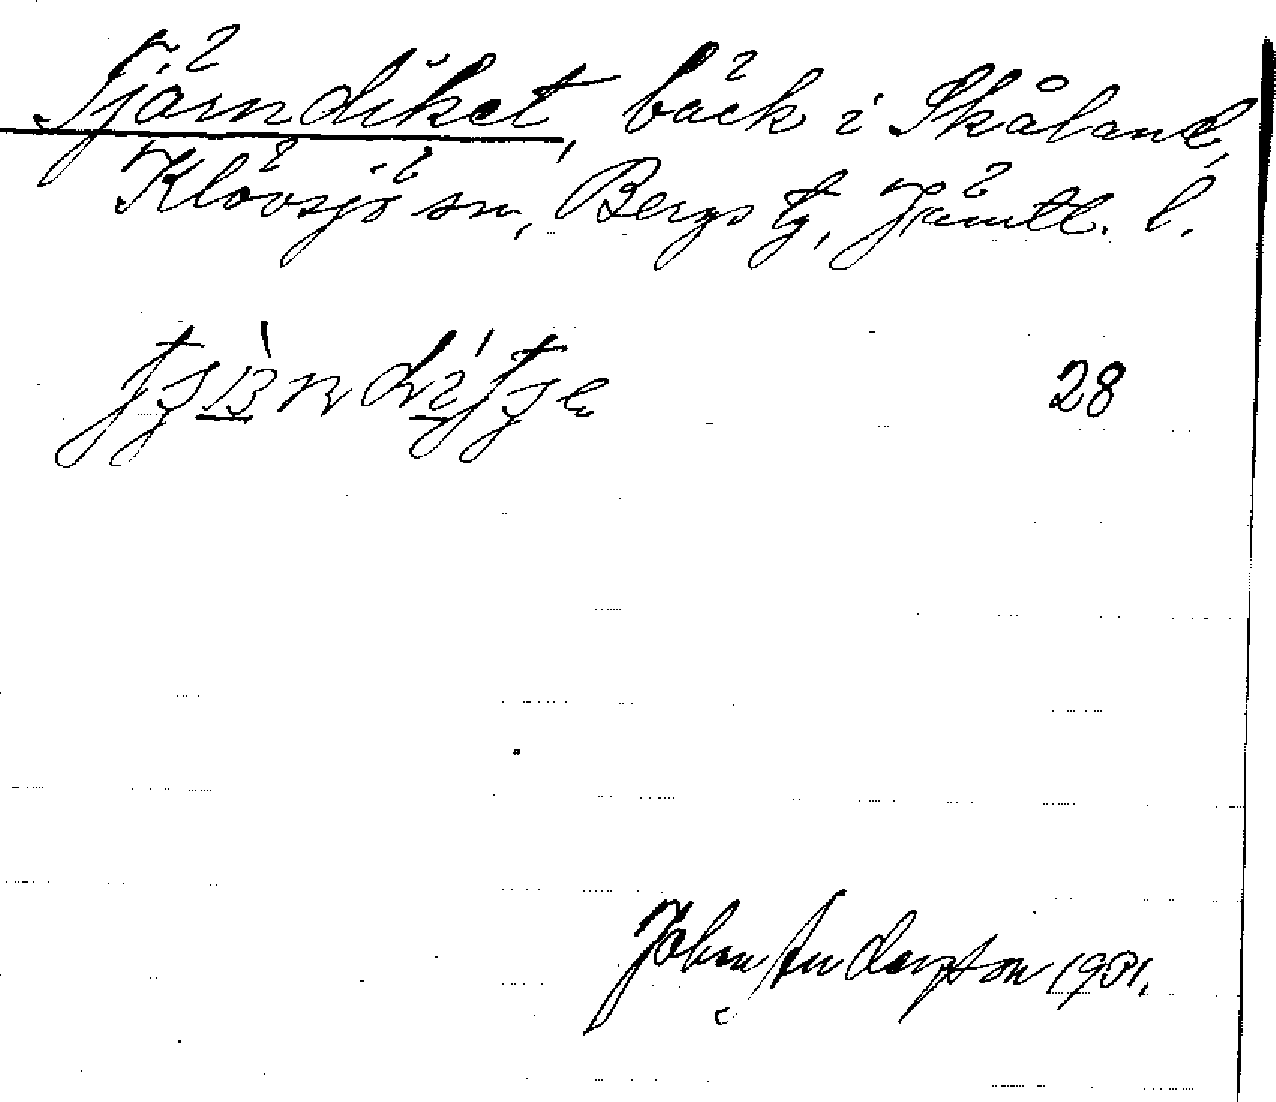 Tjärndiket, bäck i Skåland,
Klövsjö sn, Bergs tg, Jämtl. l.
28
Johan Andersson 1931.